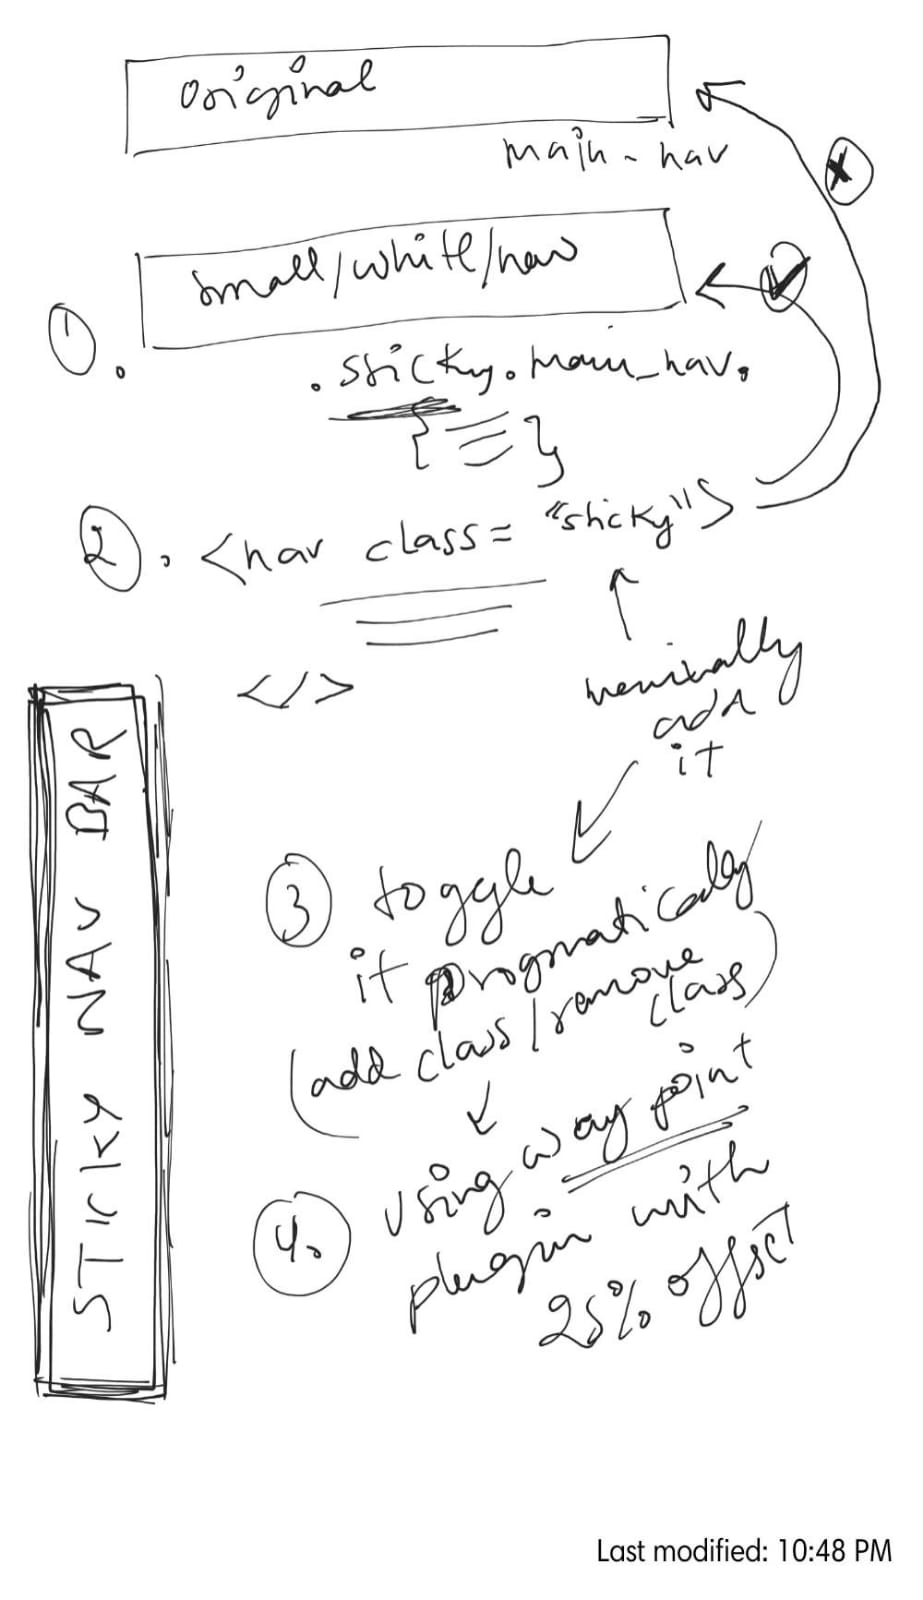 original
main - nav
small/white/nav
1.
.sticky.main_nav.
{ }
2. <nav class= "sticky">
</>
add
it
STICKY NAV BAR
3 toggle
it progmatically
(add class/remove
class)
4. Using way point
plugin with
25% offset
Last modified: 10:48 PM